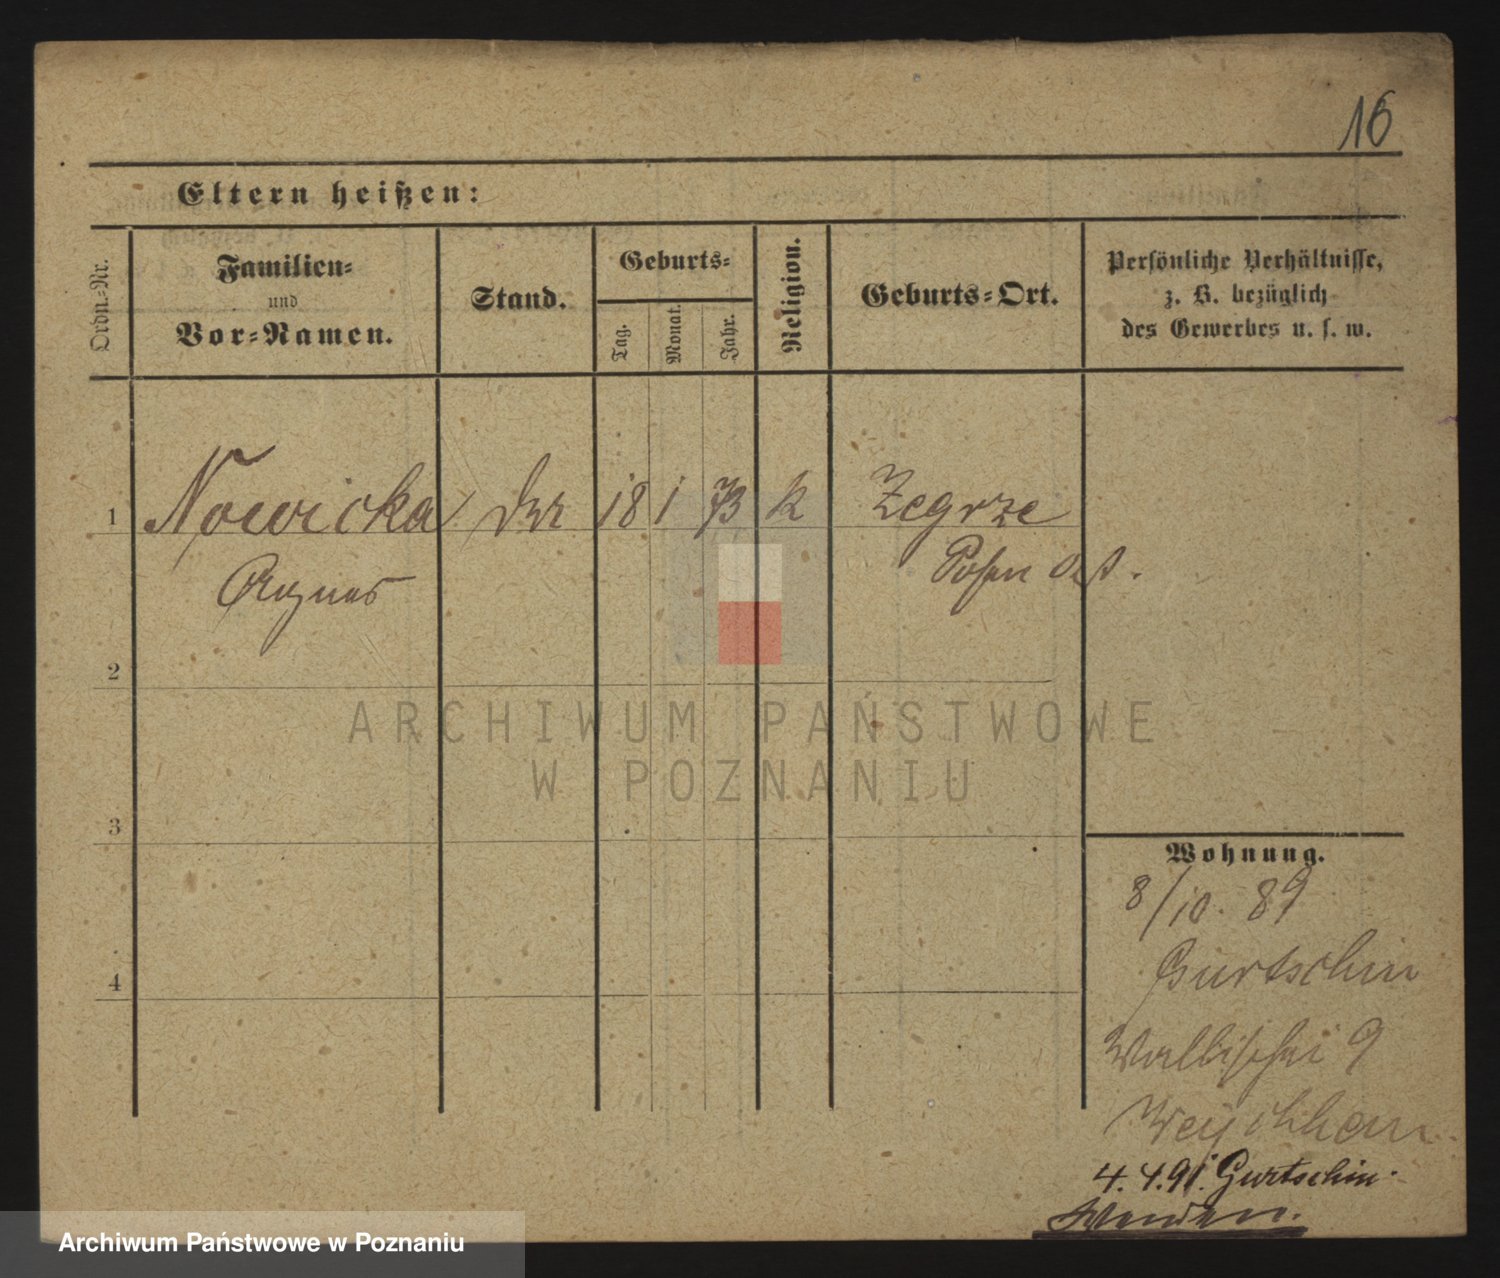 16
Eltern heißen:
Ordn.-Nr.
Familien-
und
Vor-Namen.
Stand.
Geburts-
Tag.
Monat.
Jahr.
Religion.
Geburts-Ort.
Persönliche Verhältnisse,
z. B. bezüglich
des Gewerbes u. s. w.
1 Nowicka 18 1 73 k Zegrze
Agnes Posen Ost.
2
3
4
Wohnung.
8/10. 89
Gurtschin
Wallischei 9
4.4.91. Gurtschin.
ARCHIWUM PAŃSTWOWE
W POZNANIU
Archiwum Państwowe w Poznaniu